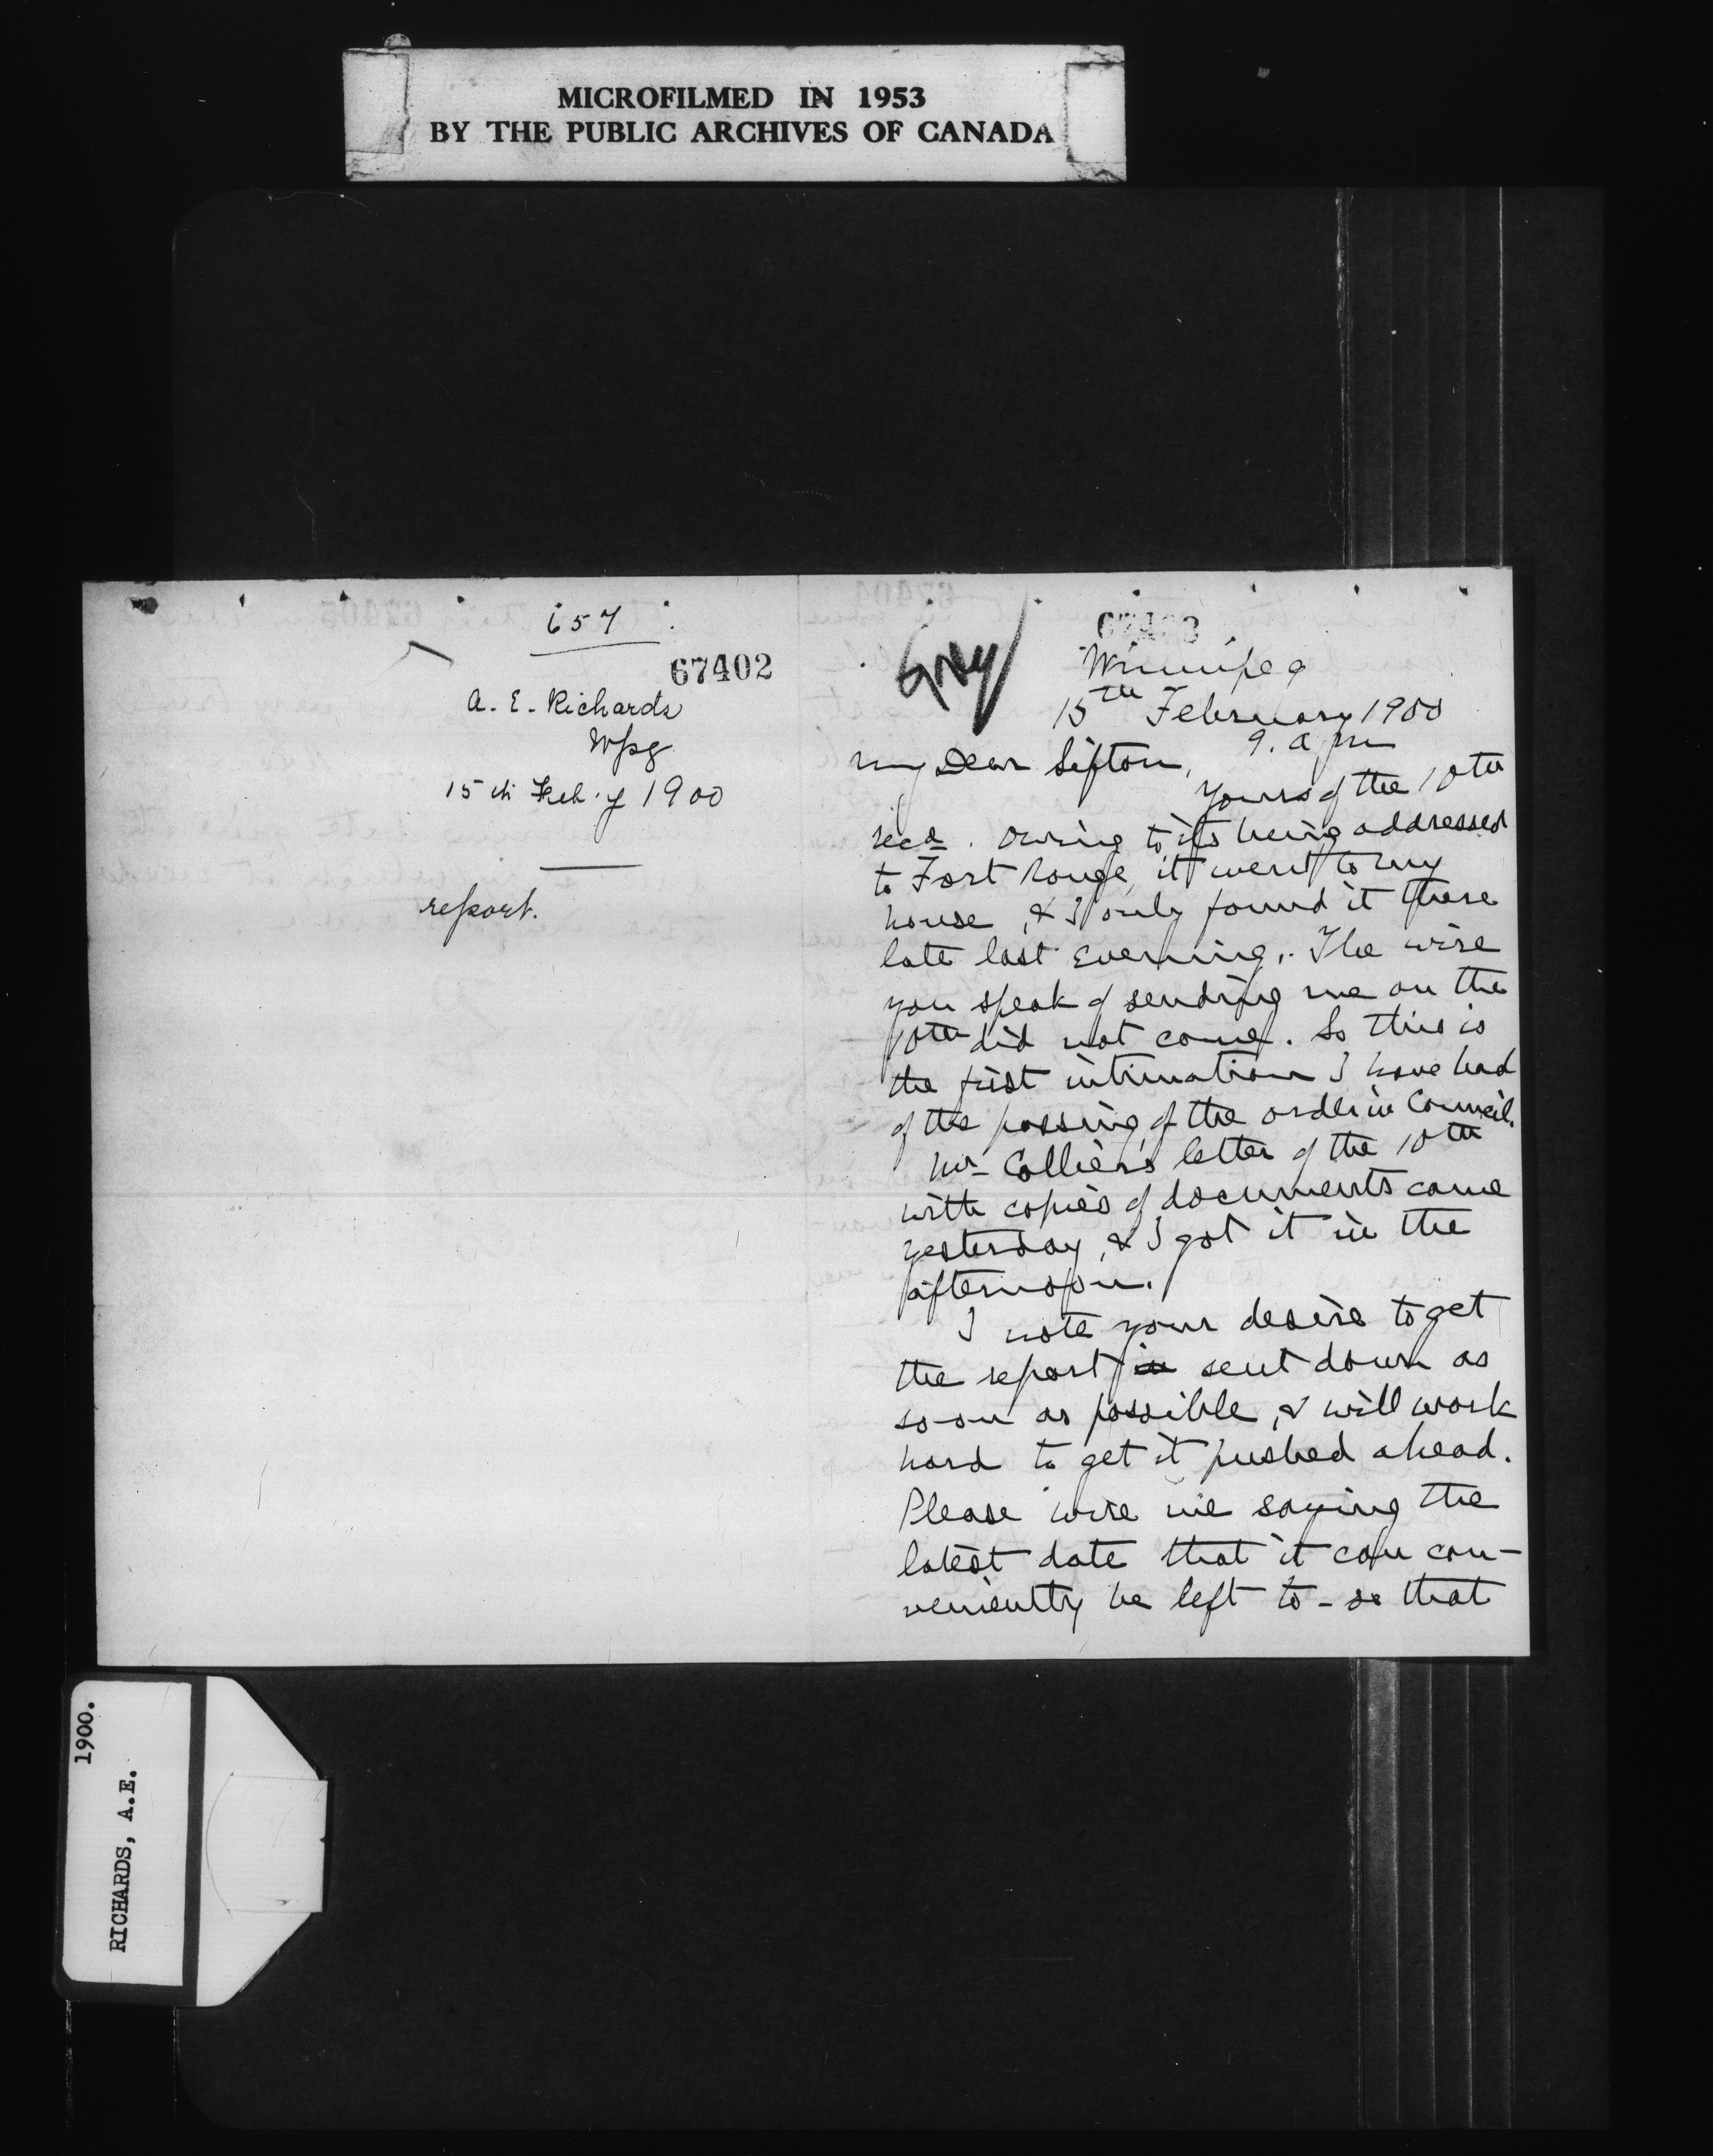 MICROFILMED IN 1953
BY THE PUBLIC ARCHIVES OF CANADA
657
67402
A. E. Richards
Wpg
15th Feb'y 1900
report.
67403
Winnipeg
15th February 1900
9. a.m
My Dear Sifton,
Yours of the 10th
recd. Owing to its being addressed
to Fort Rouge, it went to my
house, & I only found it there
late last evening. The wire
you speak of sending me on the
10th did not come. So this is
the first intimation I have had
of the passing of the order in Council.
Mr Collier's letter of the 10th
with copies of documents came
yesterday, & I got it in the
afternoon.
I note your desire to get
the report in sent down as
soon as possible, & will work
hard to get it pushed ahead.
Please wire me saying the
latest date that it can con-
veniently be left to - so that
1900.
RICHARDS, A.E.